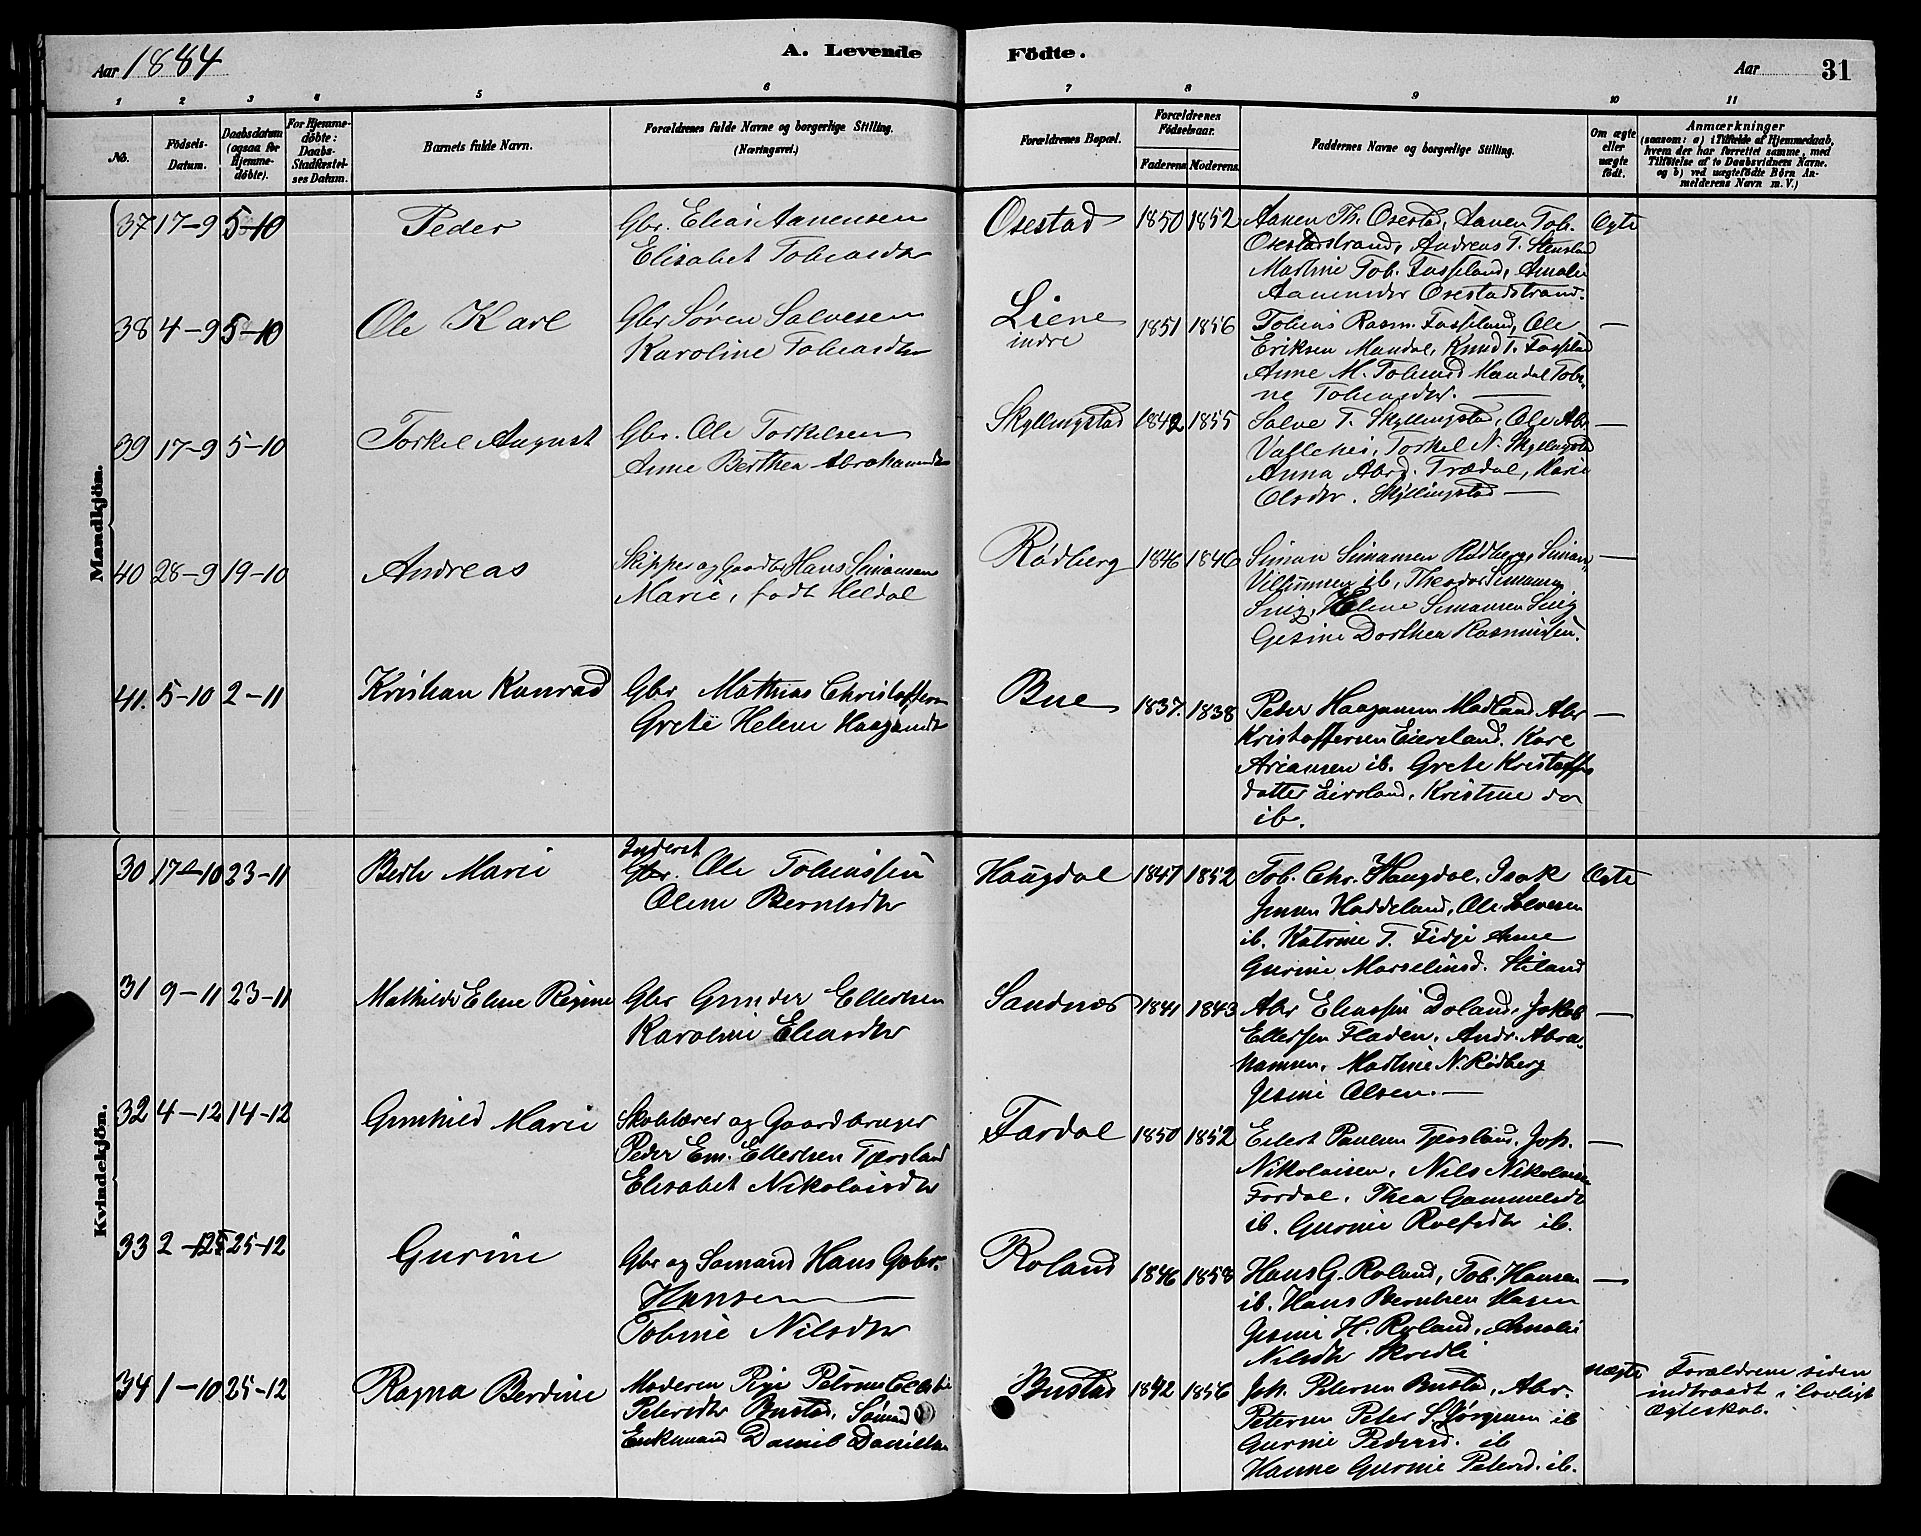 Aar 1884
A. Levende
Födte.
Aar
31
1 2 3 4 5 6 7 8 9 10 11
No.
Födsels-
Datum.
Daabsdatum
(ogsaa for
Hjemme-
døbte).
For Hjemme-
døbte:
Daabs-
Stadfæstel-
ses Datum.
Barnets fulde Navn.
Forældrenes fulde Navne og borgerlige Stilling.
(Næringsvei.)
Forældrenes Bopæl.
Forældrenes
Födselsaar.
Faderens. Moderens.
Faddernes Navne og borgerlige Stilling.
Om ægte
eller
uægte
födt.
Anmærkninger
(saasom: a) i Tilfælde af Hjemmedaab,
hvem der har forrettet samme, med
Tilföielse af to Daabsvidners Navne.
og b) ved uægtefödte Börn An-
melderens Navn m. V.)
Mandkjön.
37 17-9 5-10 Peder
Gbr. Elias Aanensen
Elisabet Tobiasdtr
Osestad 1850 1852
Aanen Th. Osestad, Aanen Tob.
Osestadstrand, Andreas T. Stenstad
Martine Tob. Fasseland, Amalie
Aanensdtr Osestadstrand.
Ægte
38 4-9 5-10 Ole Karl
Gbr Søren Salvesen
Karoline Tobiasdtr
Liene
indre
1851 1856
Tobias Rasm. Fasseland, Ole
Eriksen Mandal, Knud T. Fasseland
Anne M. Tobiasd Mandal Tobi-
ne Tobiasdtr. —
—
39 17-9 5-10 Torkel August
Gbr. Ole Torkelsen
Anne Berthea Abrahamsdtr
Skyllingstad 1842 1855
Salve T. Skyllingstad, Ole Abr.
Vatlehei, Torkel N. Skyllingstad
Anna Abrd. Trædal, Marie
Olsdtr. Skyllingstad —
—
40 28-9 19-10 Andreas
Skipper og Gaardbr Hans Simonsen
Marie, født Heldal
Rødberg 1846 1846
Simon Simonsen Rødberg, Simon
Villumsen ib, Theodor Simonsen
Snig, Helene Simonsen Snig
Gesine Dorthea Rasmussen.
—
41. 5-10 2-11 Kristian Konrad
Gbr Mathias Christoffersen
Grete Helene Haagensdtr
Bue 1837. 1838
Peder Haagensen Madland Abr
Kristoffersen Eiereland. Karl
Ariansen ib. Grete Kristoffers
datter Eieroland, Kristine do
ib.
—
Kvindekjön.
30 17-10 23-11 Berte Marie
Inderst
Gbr. Ole Tobiassen
Oline Berntsdtr
Haugdal 1847 1852
Tob. Chr. Haugdal, Isak
Jensen Haddeland, Ole Salvesen
ib. Katrine T. Fidje Anne
Gurine Marselinsd. Stiland
Ægte
31 9-11 23-11 Mathilde Eline Regine
Gbr Gunder Ellertsen
Karoline Eliasdtr
Sandnæs 1841 1843
Abr Eliassen Doland, Jakob
Ellertsen Fladen. Andr. Abra-
hamsen, Martine N. Rødberg
Jesine Olsen. —
—
32 4-12 14-12 Gunhild Marie
Skolelærer og Gaardbruger
Peder Em. Ellertsen Tjersland
Elisabet Nikolaisdtr
Fardal 1850 1852
Eilert Paulsen Tjersland, Joh.
Nikolaisen, Nils Nikolaisen
Fardal. Thea Gammelsdtr
ib. Gurine Rolfsdtr ib.
—
33 2-12 25-12 Gurine
Gbr og Sømand Hans Gabr.
Hansen —
Tobine Nilsdtr
Roland 1846 1858
Hans G. Roland, Tob. Hansen
ib. Hans Berntsen Hasen
Jesine H. Roland, Amalie
Nilsdtr Skredli
—
34 1-10 25-12 Ragna Berdine
Moderen Pige Petrine
Petersdtr Bustad, Sømand
Enkemand Daniel Danielsen
Bustad 1842 1856
Joh. Petersen Bustad, Abr.
Petersen Peter S. Jørgensen ib
Gurine Pedersd. ib
Hanne Gurine Petersd. ib.
uægte
Forældrene siden
indtraadt i lovligt
Ægteskab.